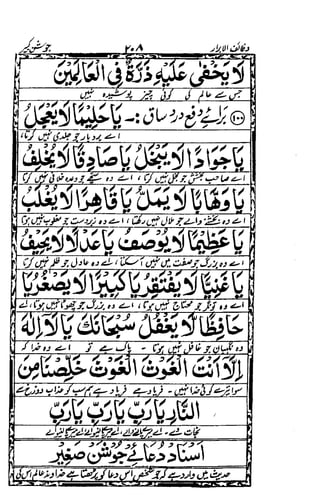 وظائف الابرار ۲۰۸ جوشن کبیر
لَا يَخْفٰى عَلَيْهِ ذَرَّةٌ فِى الْعَالَمِيْنَ
جس سے عالم کی کوئی چیز پوشیدہ نہیں
(۱۰۰) برائے دفع درد ساق :۔ يَا حَلِيْمًا لَا يَعْجَلُ
اے بردبار جو جلدی نہیں کرتا،
يَا جَوَادًا لَا يَبْخَلُ يَا صَادِقًا لَا يُخْلِفُ
اے صاحب بخشش جو بخل نہیں کرتا، اے وہ سچے جو وعدہ خلافی نہیں کرتا
يَا وَهَّابًا لَا يَمَلُّ يَا قَاهِرًا لَا يُغْلَبُ
اے وہ بخشنے والے جو ملال نہیں رکھتا، اے وہ زبردست جو مغلوب نہیں ہوتا
يَا عَظِيْمًا لَا يُوْصَفُ يَا عَدْلًا لَا يَحِيْفُ
اے وہ بزرگ جو صفت میں نہیں آسکتا، اے وہ عادل جو ظلم نہیں کرتا
يَا غَنِيًّا لَا يَفْتَقِرُ يَا كَبِيْرًا لَا يَصْغُرُ يَا
اے وہ تونگر جو محتاج نہیں ہوتا، اے وہ بزرگ جو چھوٹا نہیں ہوتا، اے
حَافِظًا لَا يَغْفُلُ سُبْحَانَكَ يَا لَا اِلٰهَ
وہ نگہبان جو غافل نہیں ہوتا، پاک ہے تو اے وہ خدا کہ
اِلَّا اَنْتَ الْغَوْثَ الْغَوْثَ خَلِّصْنَا مِنَ
سوا تیرے کوئی خدا نہیں۔ فریاد ہے فریاد ہے ہم سب کو عذاب دوزخ سے
النَّارِ يَا رَبِّ يَا رَبِّ يَا رَبِّ
نجات دے۔ اے میرے پالنے والے اے میرے پالنے والے اے میرے پالنے والے
اسناد دعائے جوشن صغیر
حدیث میں وارد ہے کہ جو شخص اس دعا کو پڑھتا ہے خداوند عالم اس کی